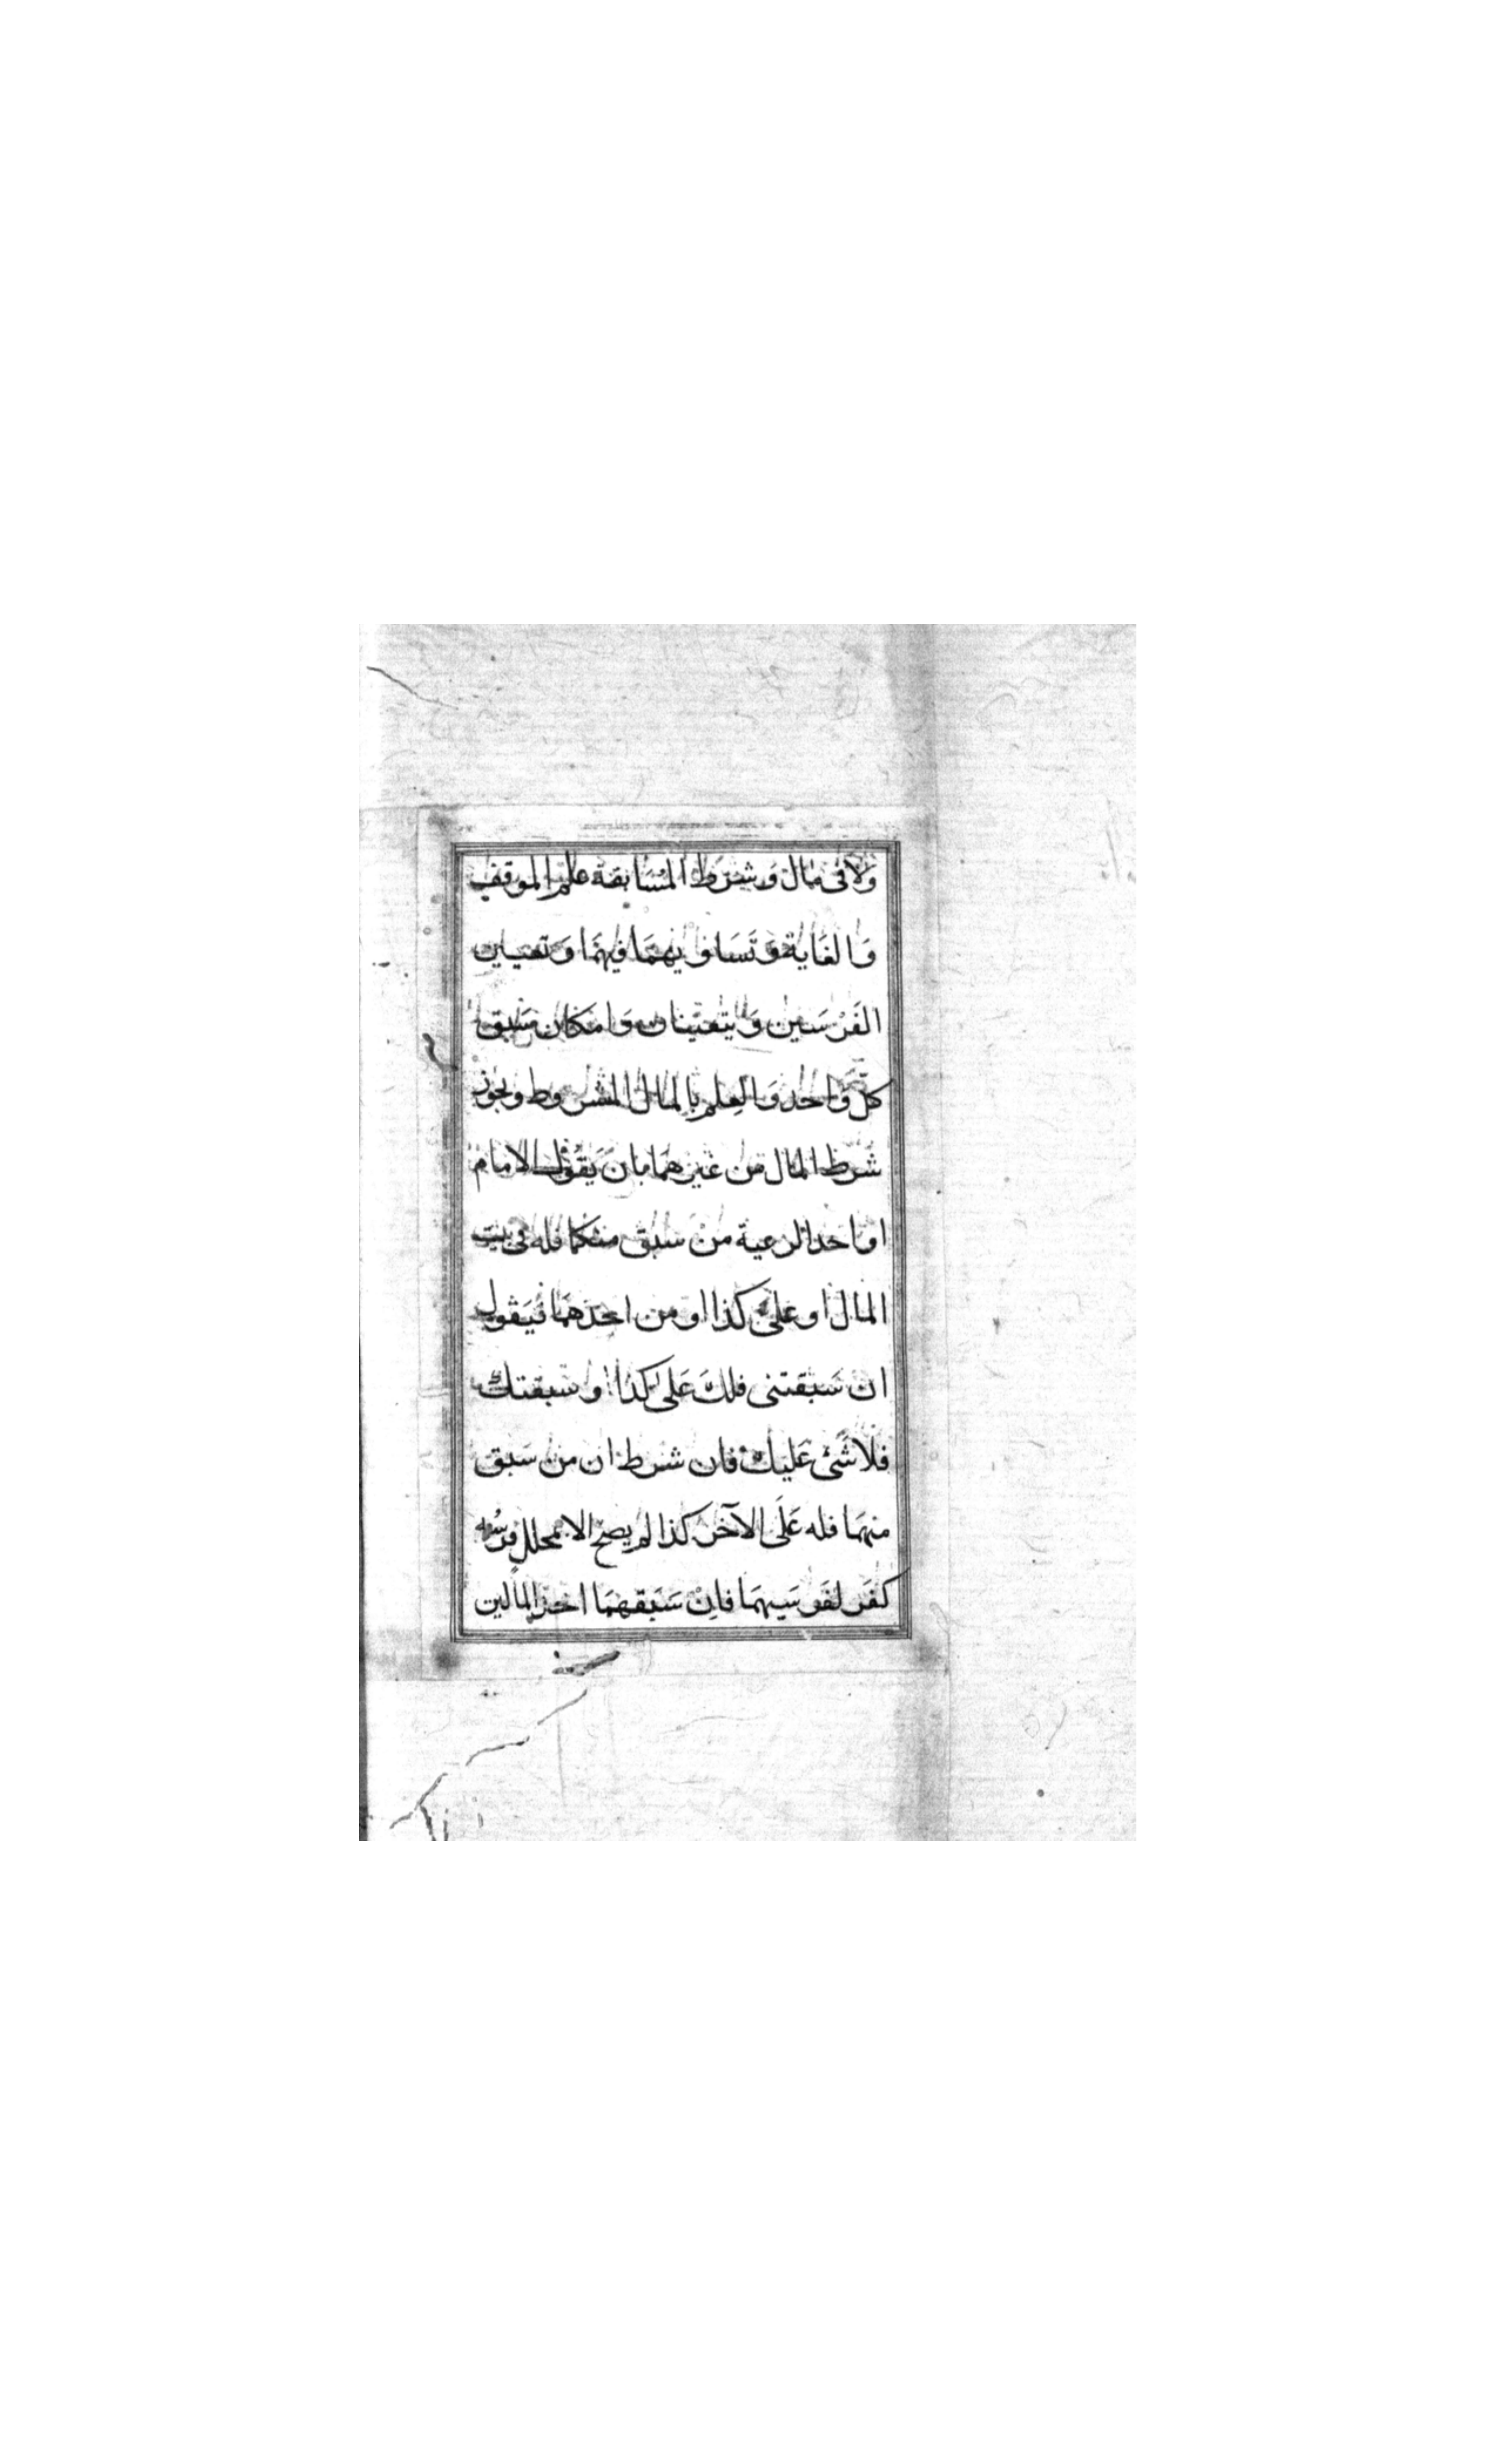 ولا في مال وشرط المسابقة علم الموقف
وَالغَاية وَتَساويهمَا فيهمَا وَتعيين
الفَرْسَين وَيتعينان وَامكان سَبق
كلّ وَاحد وَالعِلم بالمال المشروط ويجوز
شرط المال من غيرهمَا بان يَقول الامام
او احد الرعية منْ سبق منكما فله في بيت
المال او عليّ كذا او من احدهمَا فيَقول
ان سَبقتنى فلكَ عَلى كذا او سبقتك
فلا شَئ عَليك فان شرط ان من سَبق
منهمَا فله عَلَى الآخر كذا لم يصح الا بمحلل فرسُه
كفَر لفَر سَيهمَا فانْ سَبَقهمَا اخذ المالين